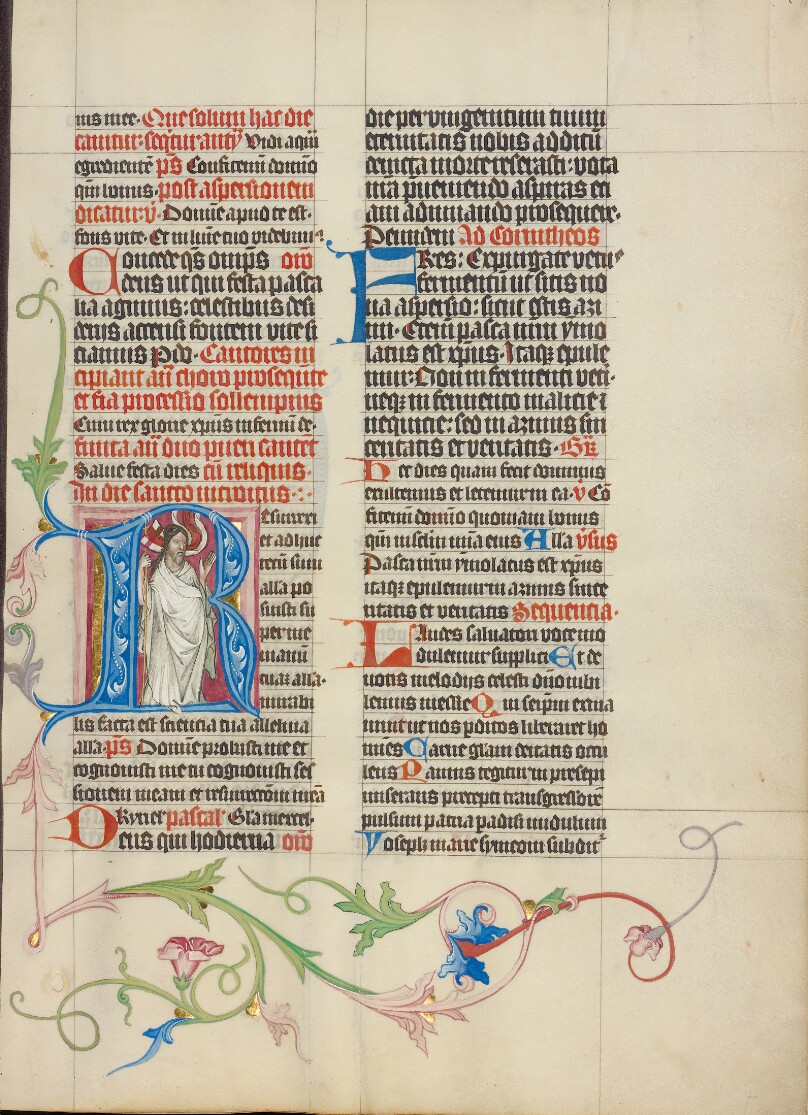 nis mee. Que solum hac die
cantitur: sequitur añ Vidi aquā
egrediente ps Confitemini domino
qm bonus. post aspersionem
dicatur v. Domine apud te est.
fons vite. Et in lumine tuo videbim
Concede qs omips oro
deus ut qui festa pasca
lia agimus: celestibus desi
deriis accensi fontem vite si
ciamus P do. Cantores in
cipiant añ choro prosequēte
et fia processio sollempnis
Cum rex glorie xpus infernū de
finita añ duo pueri cantēt
Salue festa dies cū reliquis.
In die sancto introitus.
Resurrexi
et adhuc
tecū sum
alla po
suisti su
per me
manū
tuā alla.
mirabi
lis facta est sciencia tua alleluia
alla ps Domine probasti me et
cognouisti me tu cognouisti ses
sionem meam et resurrectiōm meā
Kyriel pascal Gla in excel.
Deus qui hodierna oro
die per vnigenitum tuum
eternitatis nobis aditū
deuicta morte reserasti: vota
nrā pueniendo aspiras eti
am adiuuando prosequere.
Per eundem Ad Corintheos
FRes: Expurgate vetu
fermentū ut sitis no
ua aspersio: sicut estis azi
mi. Etenim pasca nrm ymo
latus est xpus. Itaqz epule
mur. Non in fermento veti
neqz in fermento malicie i
nequicie: sed in azimis sin
ceritatis et veritatis. Gr
Hec dies quam fecit dominus
exultemus et letemur in ea. v Cō
fitemī domīo quoniam bonus
qm in sclm mīa eius Alla vsus
Pasca nrm ymolatus est xpus
itaqz epulemur in azimis since
ritatis et veritatis Sequencia.
Laudes saluatori voce mo
dulemur supplici Et de
uotis melodijs celesti dño iubi
lemus messie Qui seipm exina
niuit ut nos pditos liberaret ho
mines Carne glām deitatis occu
lens Pannis tegitur in presepi
miserans precepti transgressorē
pulsum patria padisi nudulum
Yoseph marie symeoni subdit